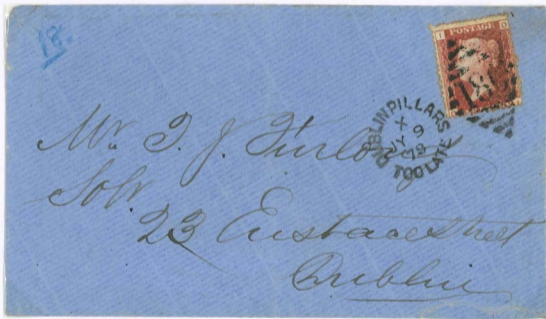 18.
I G
POSTAGE
DUBLIN PILLARS
X
JY 9
79
TOO LATE
Mr. T. J. Furlong
Solr
23 Eustace Street
Dublin